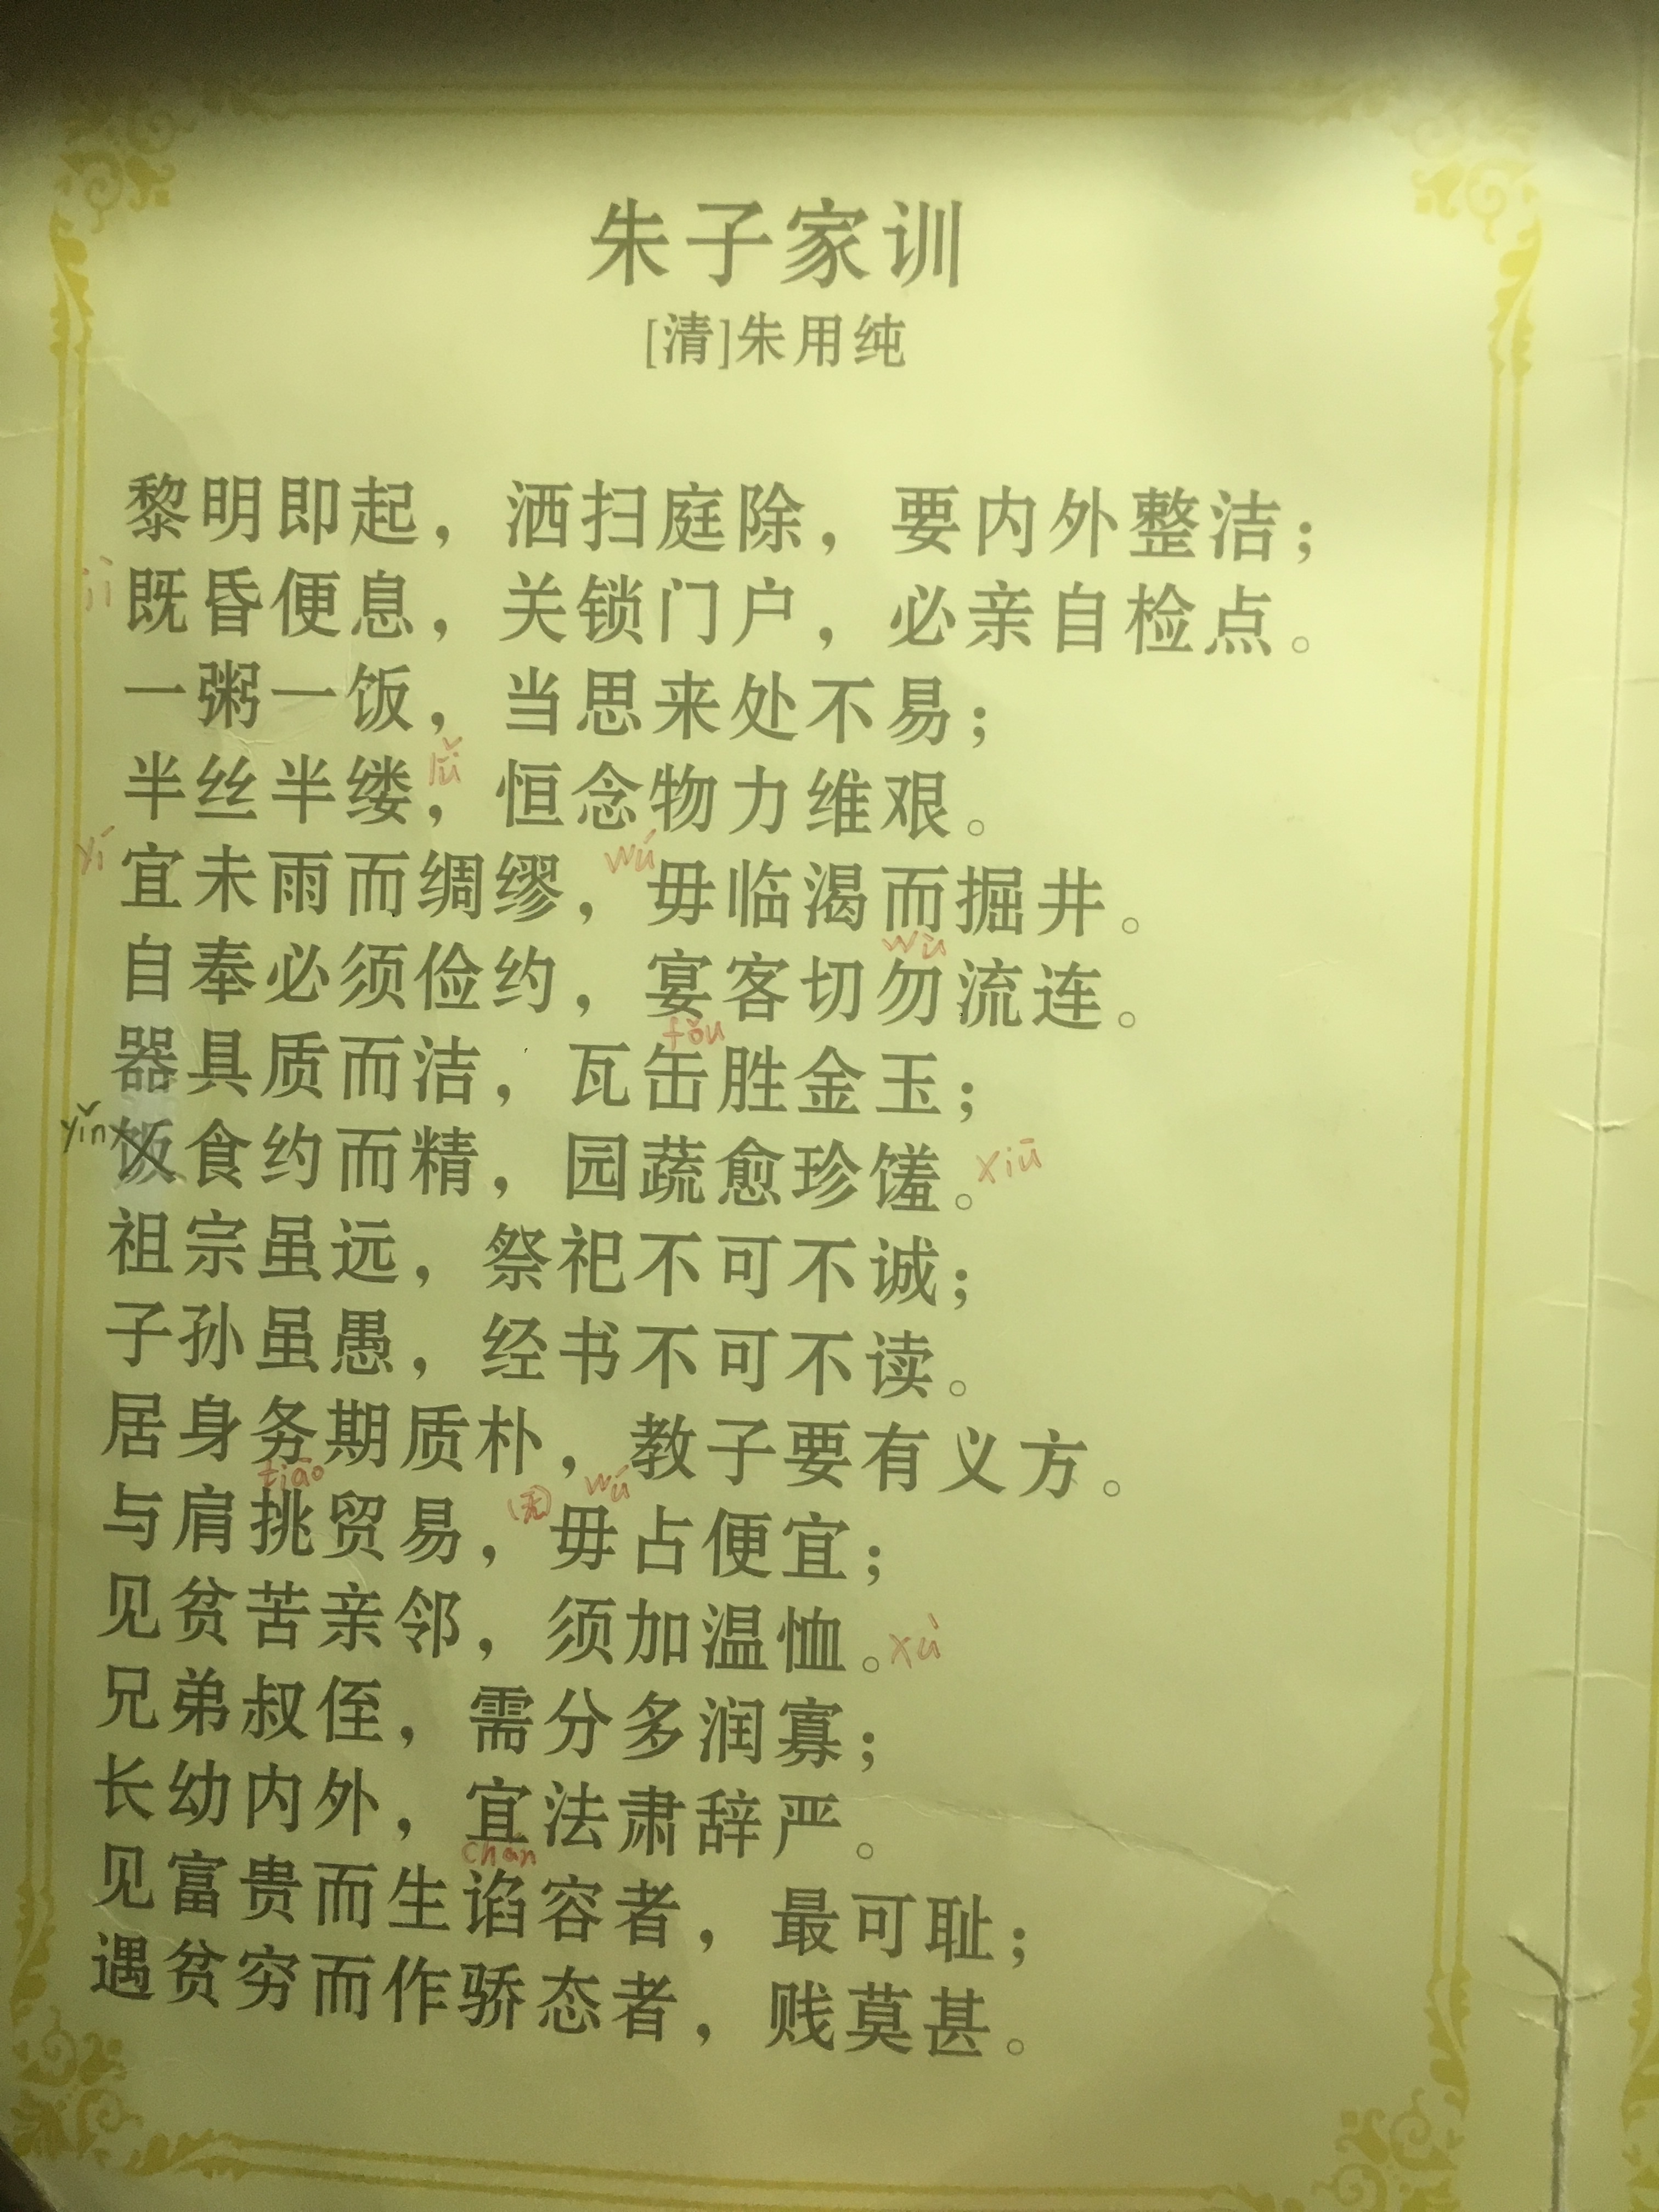 朱子家训
[清]朱用纯
黎明即起，洒扫庭除，要内外整洁；
jì
既昏便息，关锁门户，必亲自检点。
一粥一饭，当思来处不易；
半丝半缕，恒念物力维艰。
lǚ
yí wú
宜未雨而绸缪，毋临渴而掘井。
wù
自奉必须俭约，宴客切勿流连。
fǒu
器具质而洁，瓦缶胜金玉；
yǐn
饭食约而精，园蔬愈珍馐。xiū
祖宗虽远，祭祀不可不诚；
子孙虽愚，经书不可不读。
居身务期质朴，教子要有义方。
tiāo (无) wú
与肩挑贸易，毋占便宜；
见贫苦亲邻，须加温恤。xù
兄弟叔侄，需分多润寡；
长幼内外，宜法肃辞严。
chǎn
见富贵而生谄容者，最可耻；
遇贫穷而作骄态者，贱莫甚。